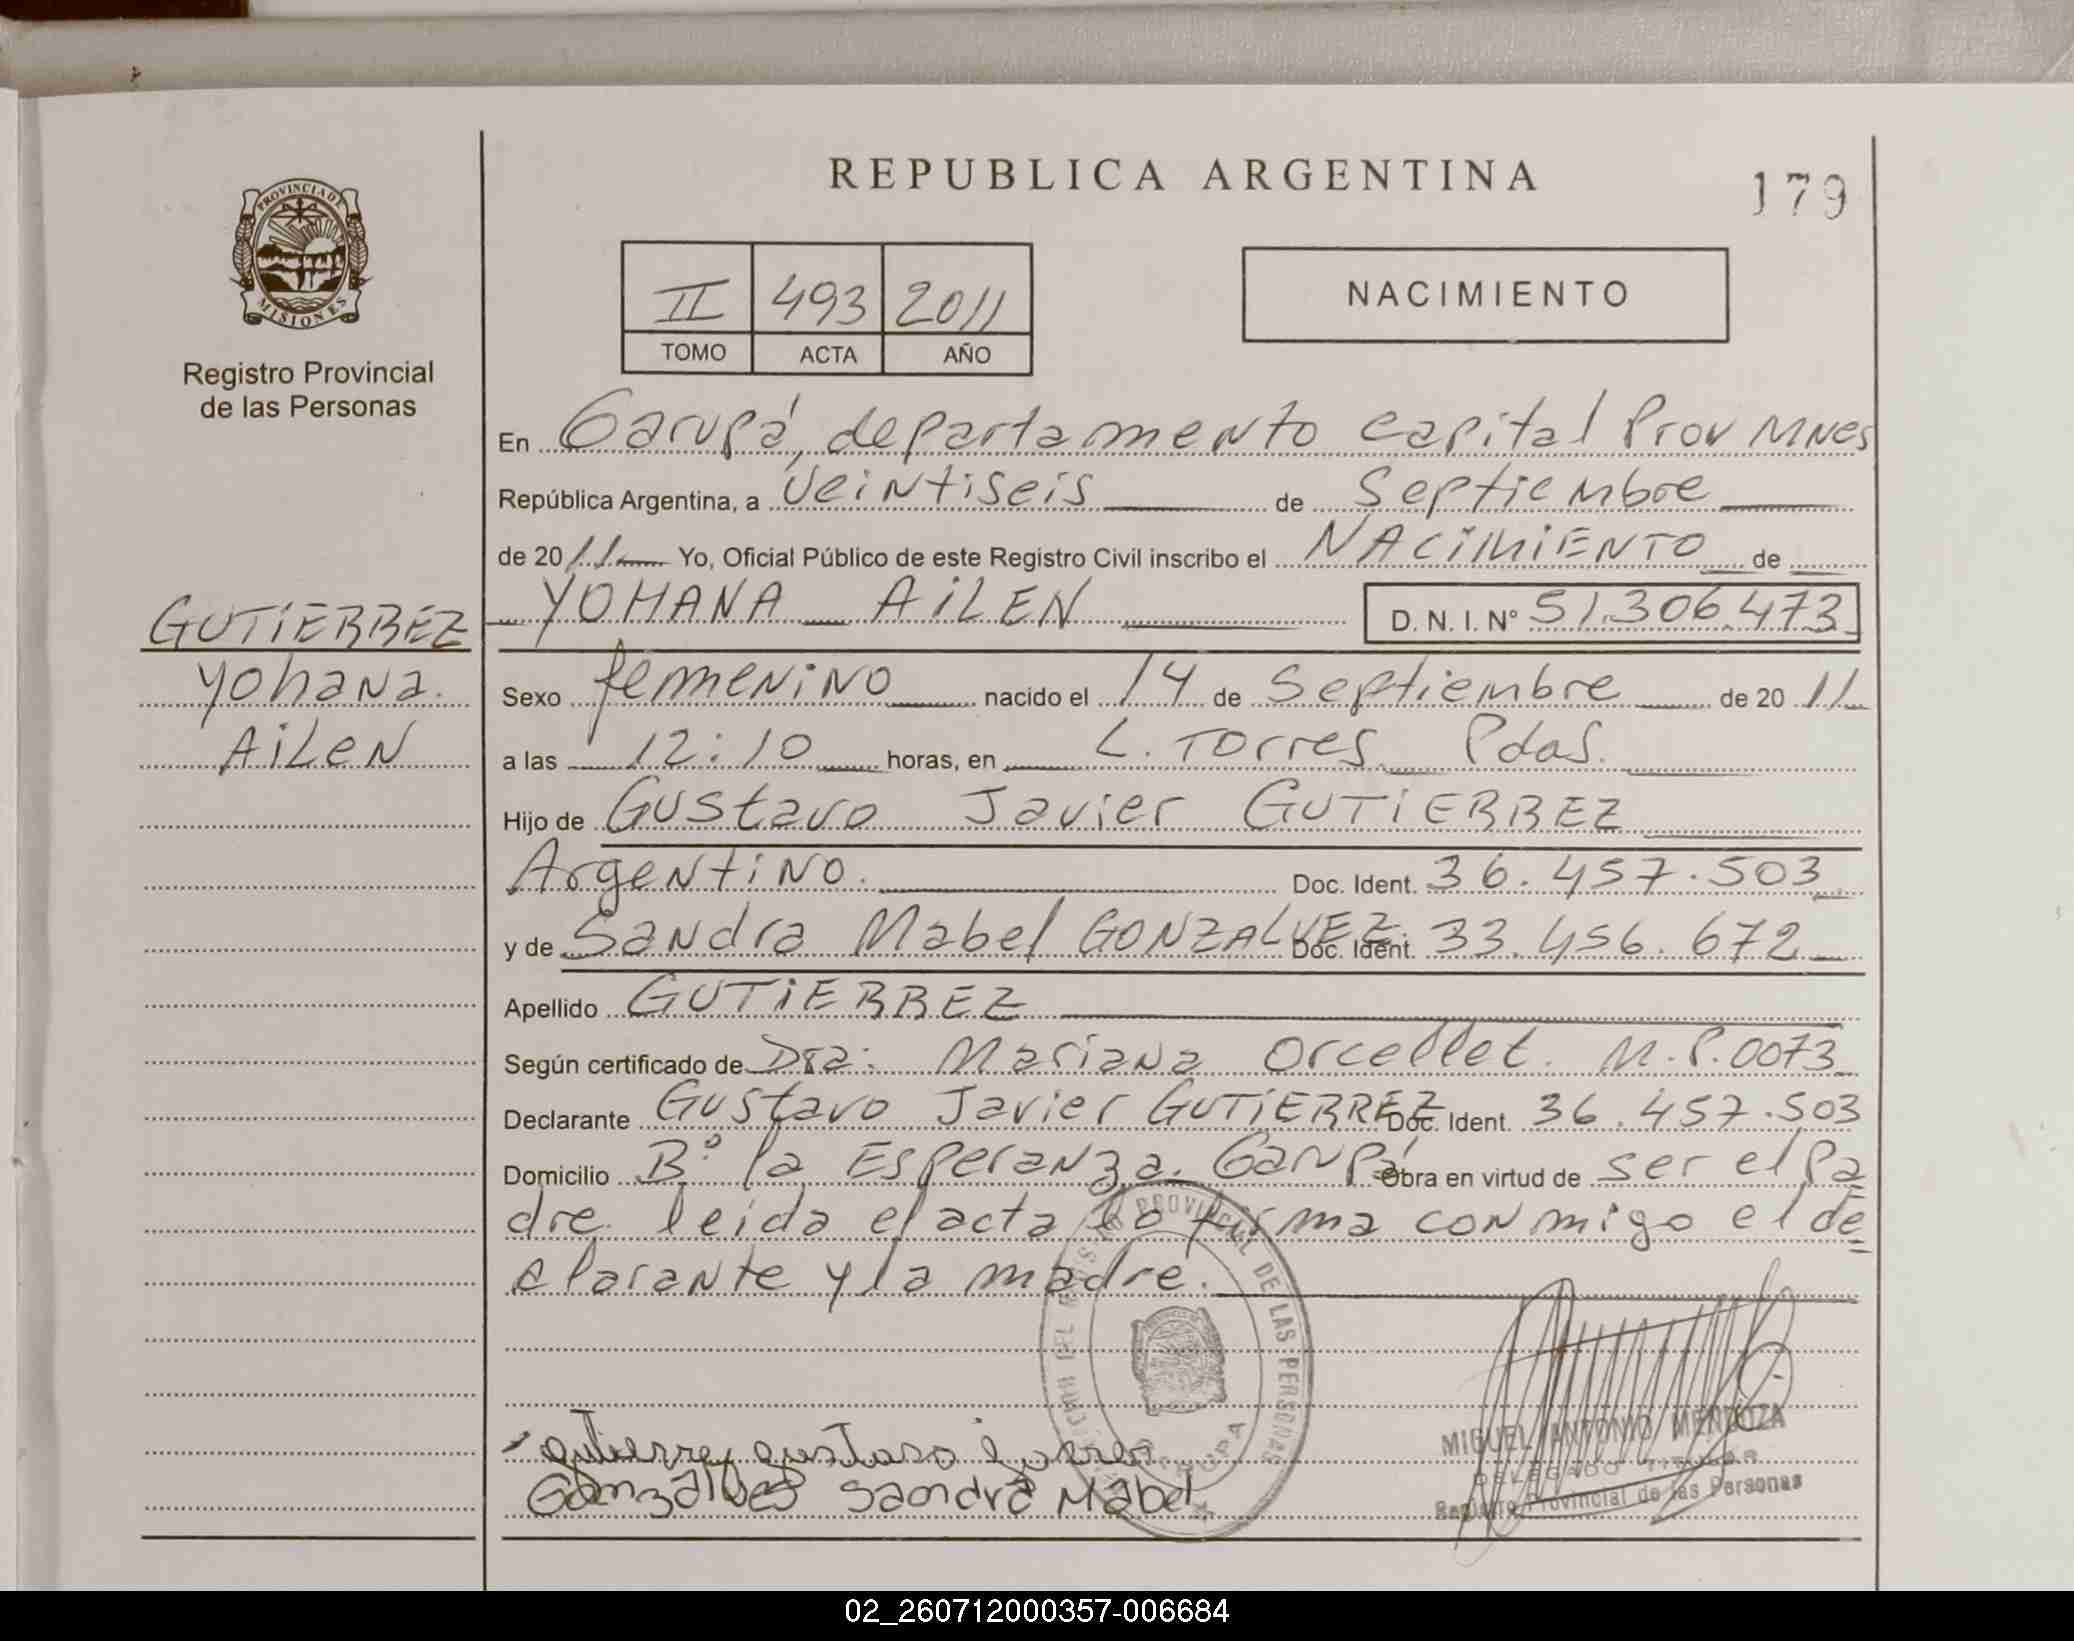 REPUBLICA ARGENTINA
179
PROVINCIA DE
MISIONES
Registro Provincial
de las Personas
II 493 2011
TOMO ACTA AÑO
NACIMIENTO
En Garupá, departamento capital Prov Mnes
República Argentina, a veintiseis de Septiembre
de 2011 Yo, Oficial Público de este Registro Civil inscribo el NACIMIENTO de
YOHANA AiLEN D. N. I. Nº 51.306.473
GUTiERREZ
Yohana
AiLeN
Sexo femenino nacido el 14 de Septiembre de 2011
a las 12:10 horas, en L. Torres Pdas.
Hijo de Gustavo Javier GUTiERREZ
Argentino. Doc. Ident. 36.457.503
y de Sandra Mabel GONZALVEZ Doc. Ident. 33.456.672
Apellido GUTiERREZ
Según certificado de Dra: Mariana Orcellet. M.P.0073
Declarante Gustavo Javier GUTiERREZ Doc. Ident. 36.457.503
Domicilio Bº la Esperanza. Garupá Obra en virtud de ser el pa
dre. leida el acta lo firma conmigo el de=
clarante y la madre.
PROVINCIAL DE LAS PERSONAS
gutierrez gustavo
Gonzalves Sandra Mabel
MIGUEL ANTONIO MENDOZA
DELEGADO TITULAR
Registro Provincial de las Personas
02_260712000357-006684